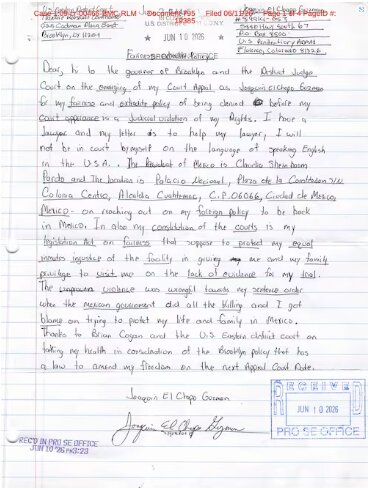 Case 1:09-cr-00466-BMC-RLM Document 795 Filed 06/11/26 Page 1 of 4 PageID #:
Brooklyn, NY 11201
JUN 10 2026
P.O. Box 8500
U.S. Penitentiary
Florence, Colorado 81226
Dear, hi to the governor of Brooklyn and the District Judge
Court on the of my Court Appeal as Joaquin El Chapo Guzman
for my fairness and extradite policy of being denied before my
court appearance is a Judicial violation of my Rights. I have a
lawyer and my letter is to help my lawyer, I will
not be in court by myself on the language of speaking English
in the U.S.A. The President of Mexico is Claudia Sheinbaum
Pardo and The location is Palacio Nacional, Plaza de la Constitucion S/N
Colonia Centro, Alcaldia Cuauhtemoc, C.P. 06066, Ciudad de Mexico,
Mexico - on reaching out on my foreign policy to be back
in Mexico. In also my constitution of the courts is my
legislation Act on fairness that suppose to protect my equal
inmates injustice of the facility in giving me and my family
privilege to visit me on the lack of evidence for my trial.
The violence was wrought towards my sentence order
when the mexican government did all the killing and I got
blame on trying to protet my life and family in Mexico.
Thanks to Brian Cogan and the U.S Eastern district court on
taking my health in consideration of the Brooklyn policy that has
a law to amend my freedom on the next Appeal Court Date.
Joaquin El Chapo Guzman
Joaquin El Chapo Guzman
RECEIVED
JUN 10 2026
PRO SE OFFICE
REC'D IN PRO SE OFFICE
JUN 10 '26 PM3:23